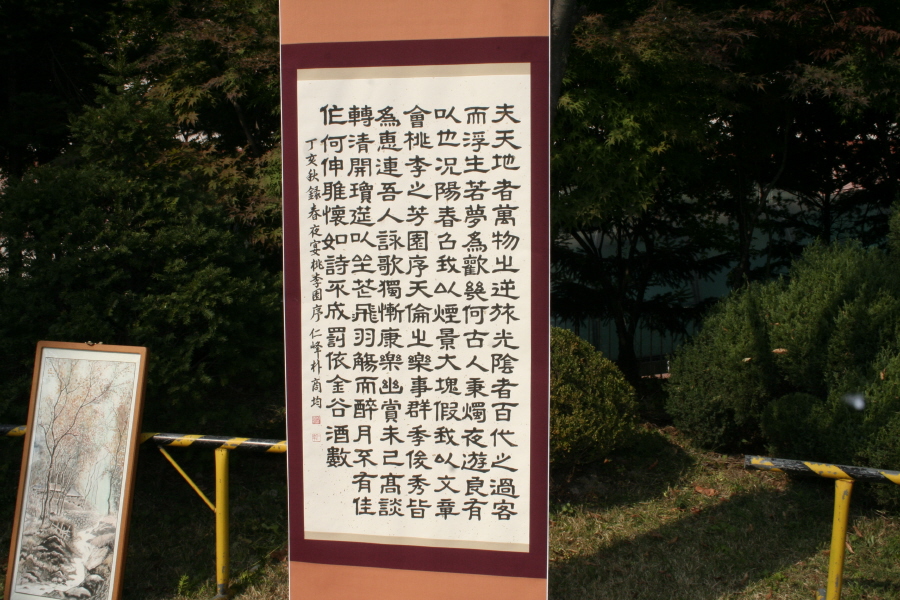 夫天地者萬物之逆旅光陰者百代之過客
而浮生若夢為歡幾何古人秉燭夜遊良有
以也況陽春召我以煙景大塊假我以文章
會桃李之芳園序天倫之樂事群季俊秀皆
為惠連吾人詠歌獨慚康樂幽賞未已髙談
轉清開瓊筵以坐花飛羽觴而醉月不有佳
作何伸雅懷如詩不成罰依金谷酒數
丁亥秋録春夜宴桃李園序 仁峰朴商均